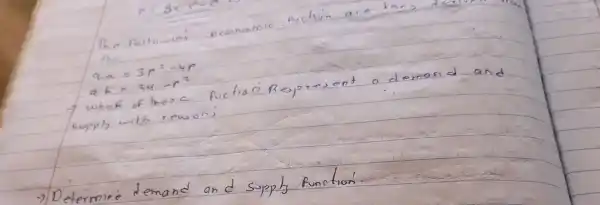 The following economic function are
qa = 3p² - 4p
qb = 24 - p²
→ which of these function Represent a demand and
supply with reason
→ Determine demand and Supply Function.